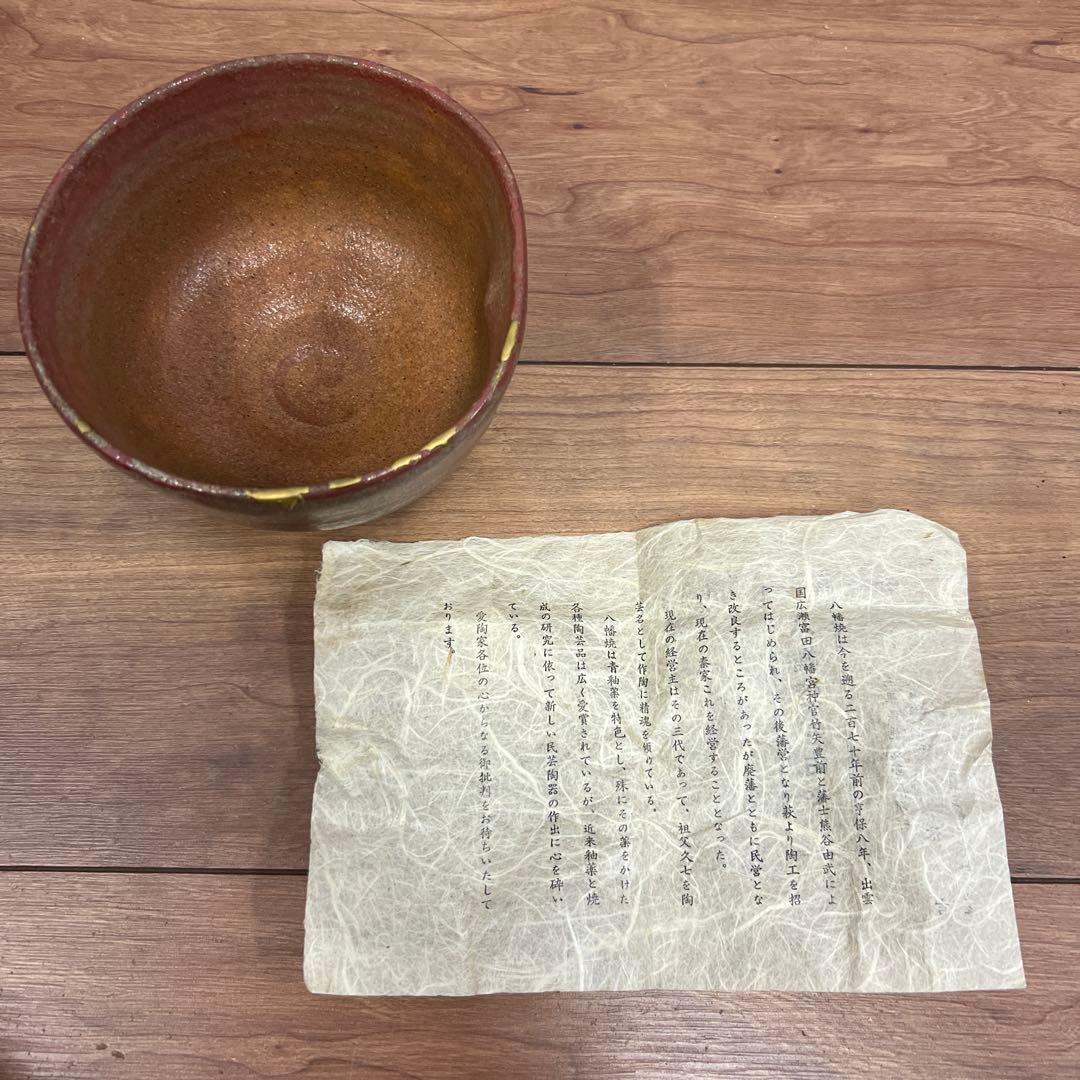 八幡焼は今を遡る二百七十年前の亨保八年、出雲
国広瀬富田八幡宮神官竹矢豊前と藩士熊谷由武によ
ってはじめられ、その後藩営となり萩より陶工を招
き改良するところがあったが廃藩とともに民営とな
り、現在の秦家これを経営することとなった。
現在の経営主はその三代であって、祖父久七を陶
芸名として作陶に精魂を傾けている。
八幡焼は青釉薬を特色とし、殊にその薬をかけた
各種陶芸品は広く受賞されているが、近来釉薬と焼
成の研究に依って新しい民芸陶器の作出に心を砕い
ている。
愛陶家各位の心からなる御批判をお待ちいたして
おります。